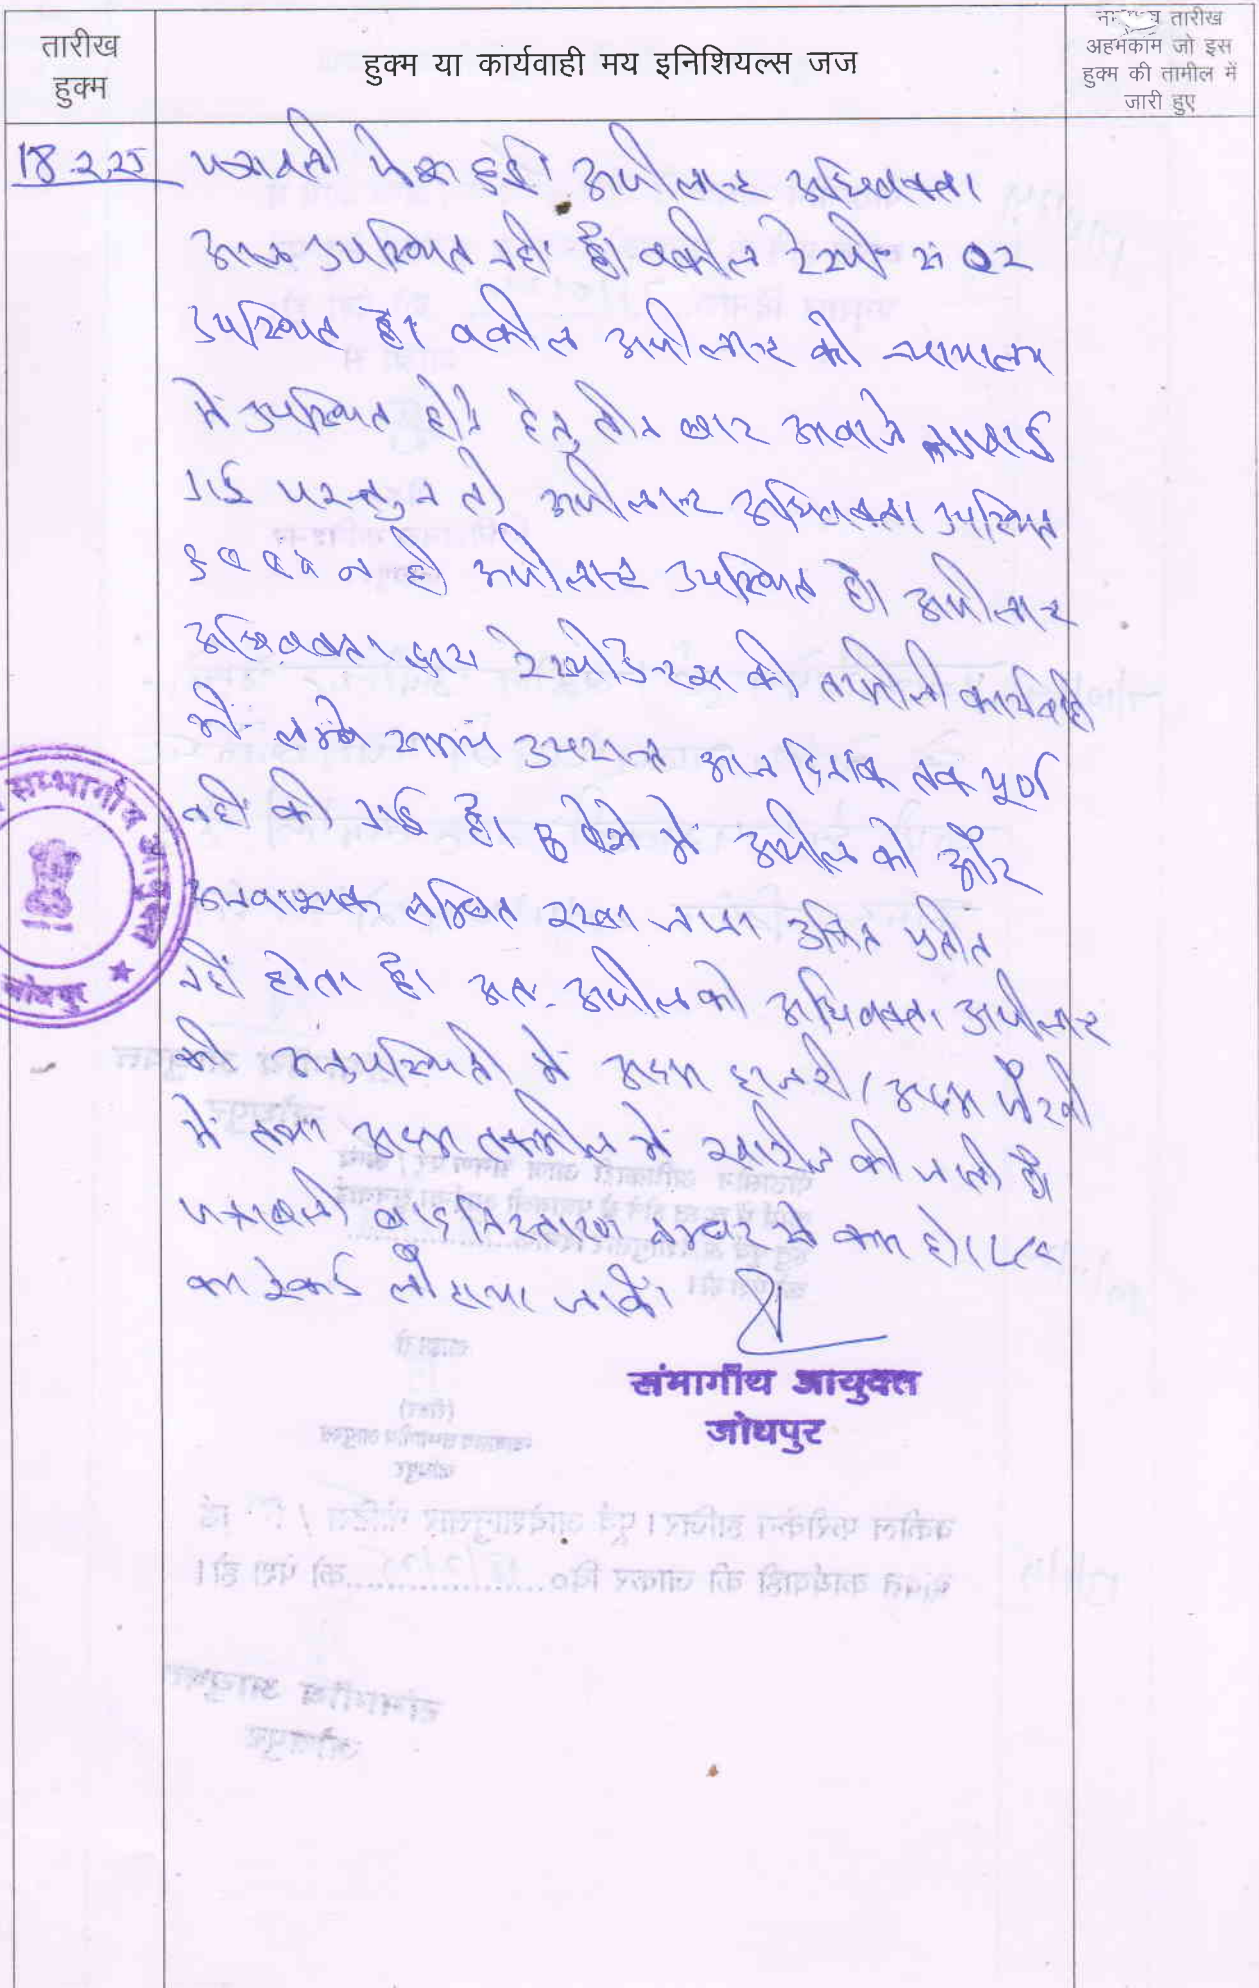 तारीख
हुक्म
हुक्म या कार्यवाही मय इनिशियल्स जज
तारीख
अहमकाम जो इस
हुक्म की तामील में
जारी हुए
18.2.25 पत्रावली पेश हुई। अपीलान्ट अधिवक्ता
आज उपस्थित नहीं है। वकील रेस्पो. सं 02
उपस्थित है। वकील अपीलान्ट को न्यायालय
में उपस्थित होने हेतु तीन बार आवाजे लगवाई
गई परन्तु न तो अपीलान्ट अधिवक्ता उपस्थित
न ही अपीलान्ट उपस्थित है। अपीलान्ट
अधिवक्ता द्वारा रेस्पोडेन्टस की तामीली कार्यवाही
भी लम्बे समय उपरान्त आज दिनांक तक पूर्ण
नहीं की गई है। ऐसे में अपील को और
अनावश्यक लम्बित रखा जाना उचित प्रतीत
नहीं होता है। अतः अपील को अधिवक्ता अपीलान्ट
की अनुपस्थिती में अदम हाजरी/अदम पैरवी
में तथा अदम तकमील में खारीज की जाती है।
पत्रावली बाद निस्तारण नम्बर से कम हो।
का रेकर्ड लौटाया जावें।
सम्भागीय आयुक्त
जोधपुर
संभागीय आयुक्त
जोधपुर